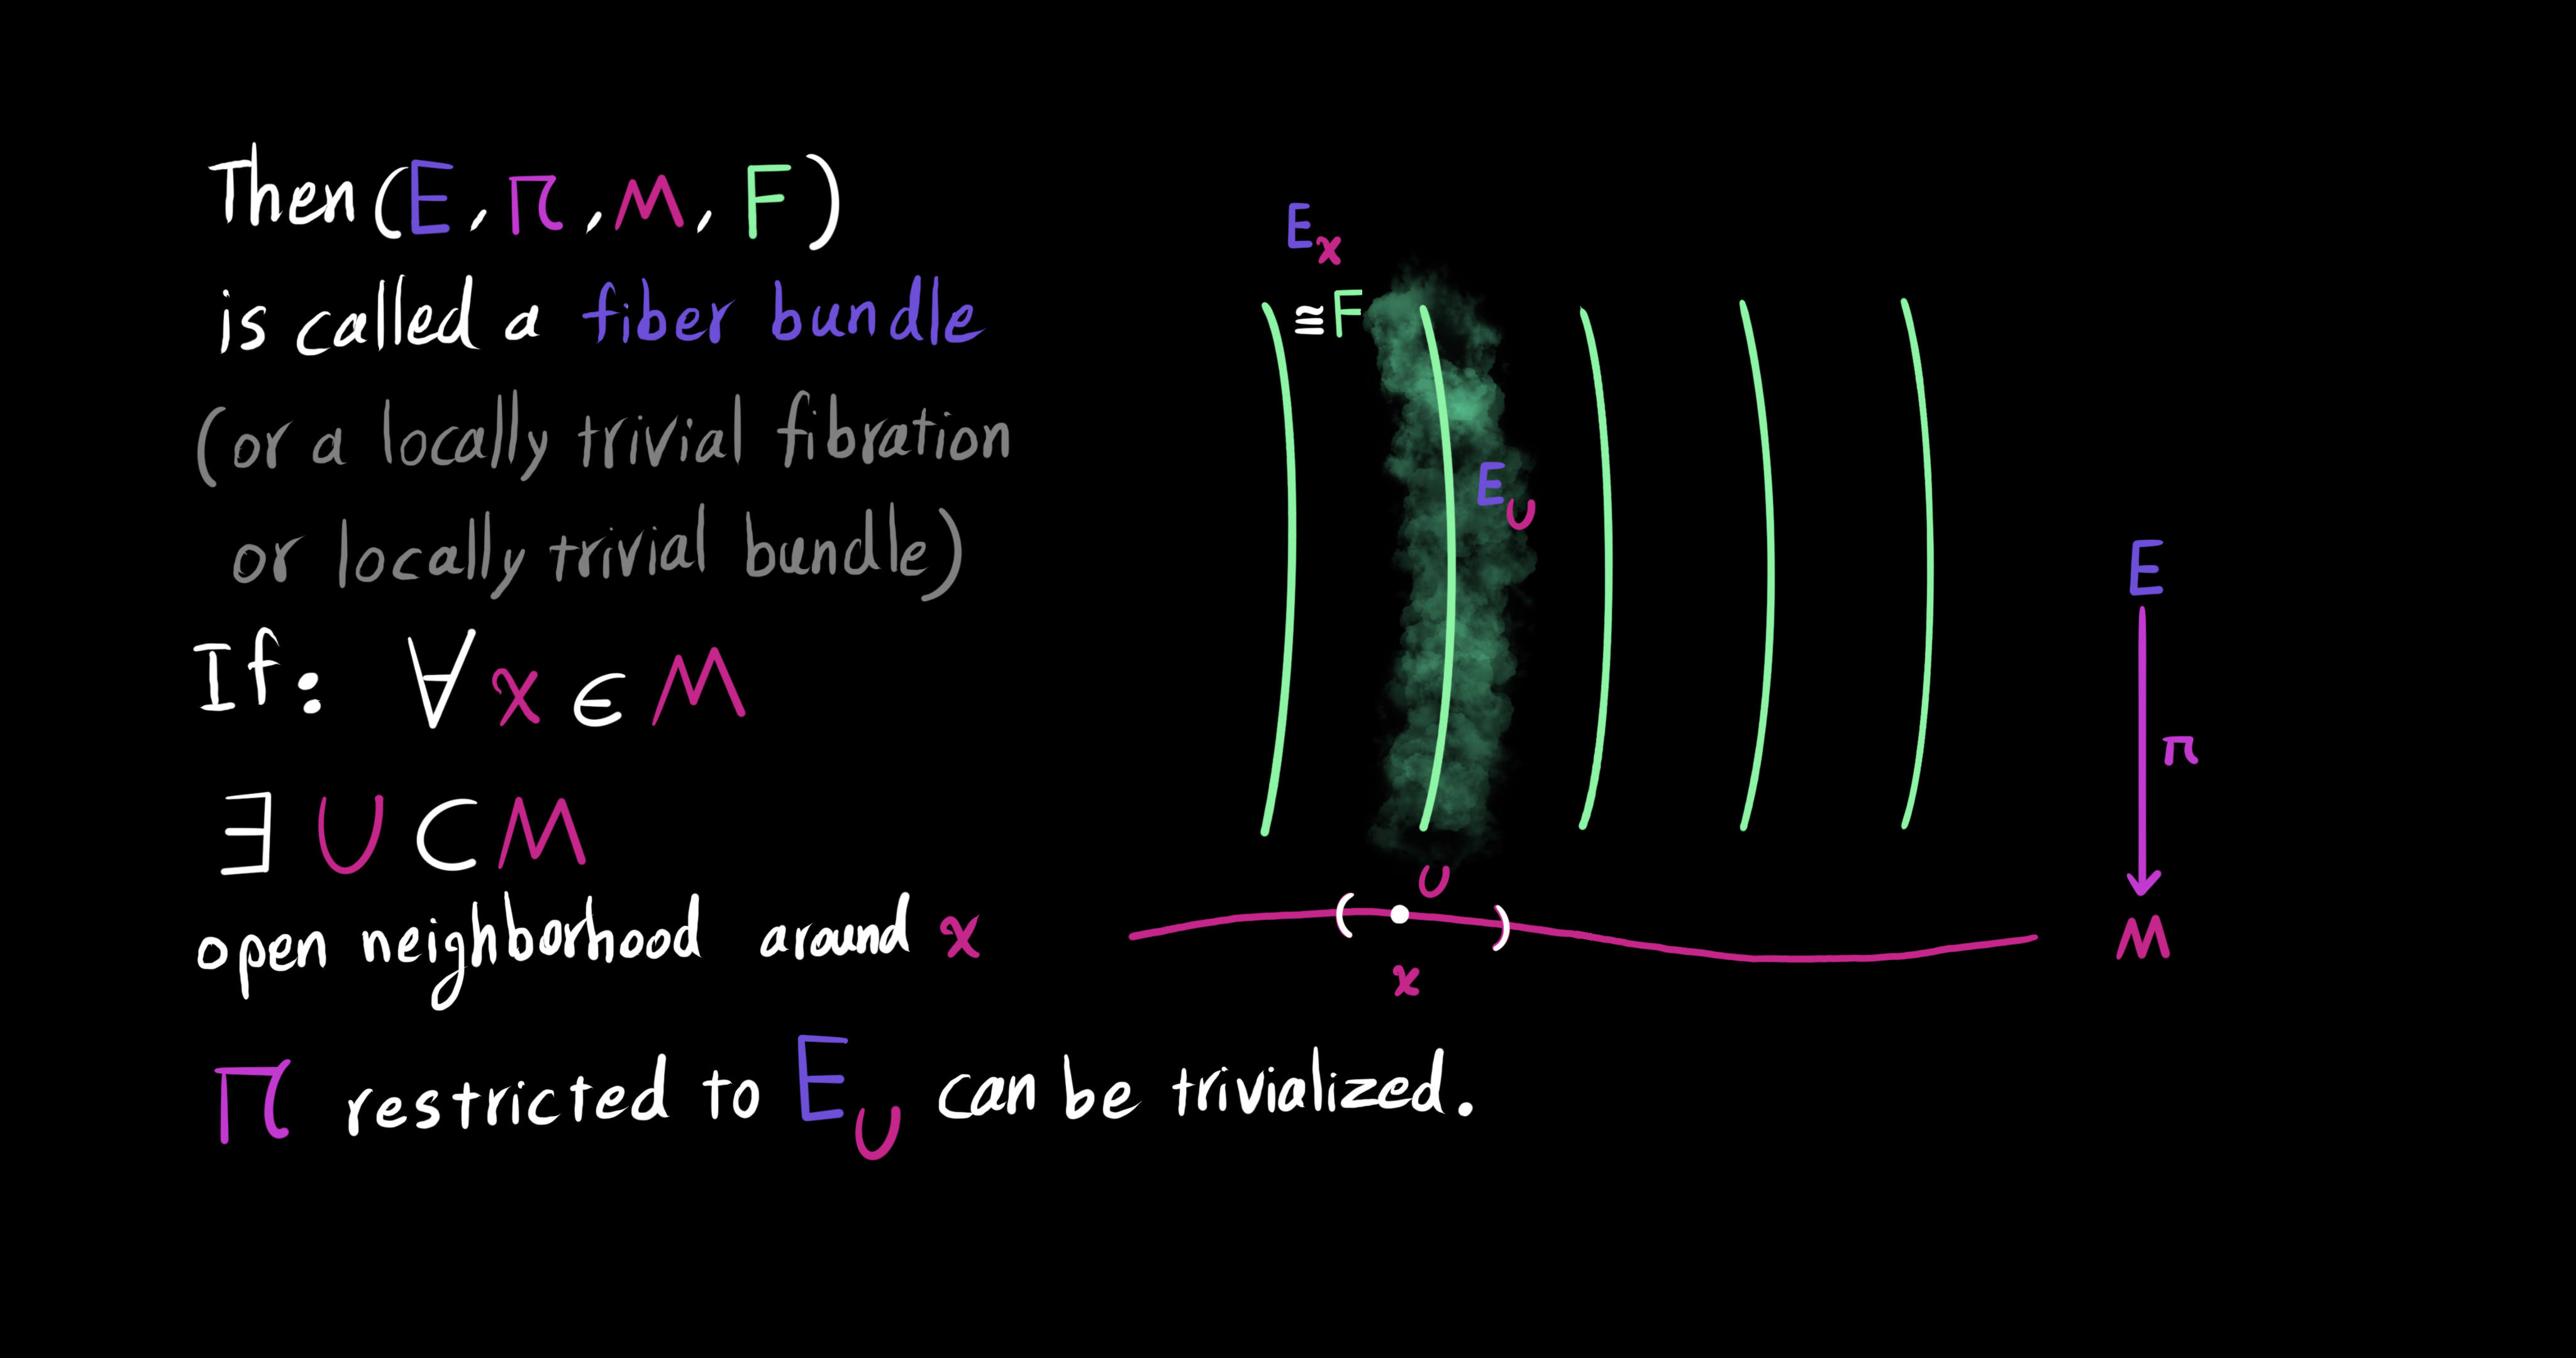 Then (E, π, M, F)
is called a fiber bundle
(or a locally trivial fibration
or locally trivial bundle)
If: ∀ x ∈ M
∃ U ⊂ M
open neighborhood around x
π restricted to E_U can be trivialized.
E_x
≅ F
E_U
U
x
E
π
M